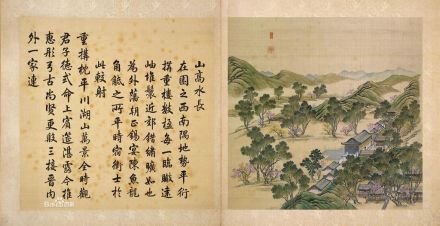 山高水長
在園之西南隅地勢平衍
構重樓數楹每一臨瞰遠
岫堆鬟近郊錯繡曠如也
為外藩朝正錫宴陳魚龍
角觝之所平時宿衛士於
此較射
重構枕平川湖山萬景全時觀
君子德式命上賓筵湛露今推
惠彤弓古尚賢更殷三接晉內
外一家連